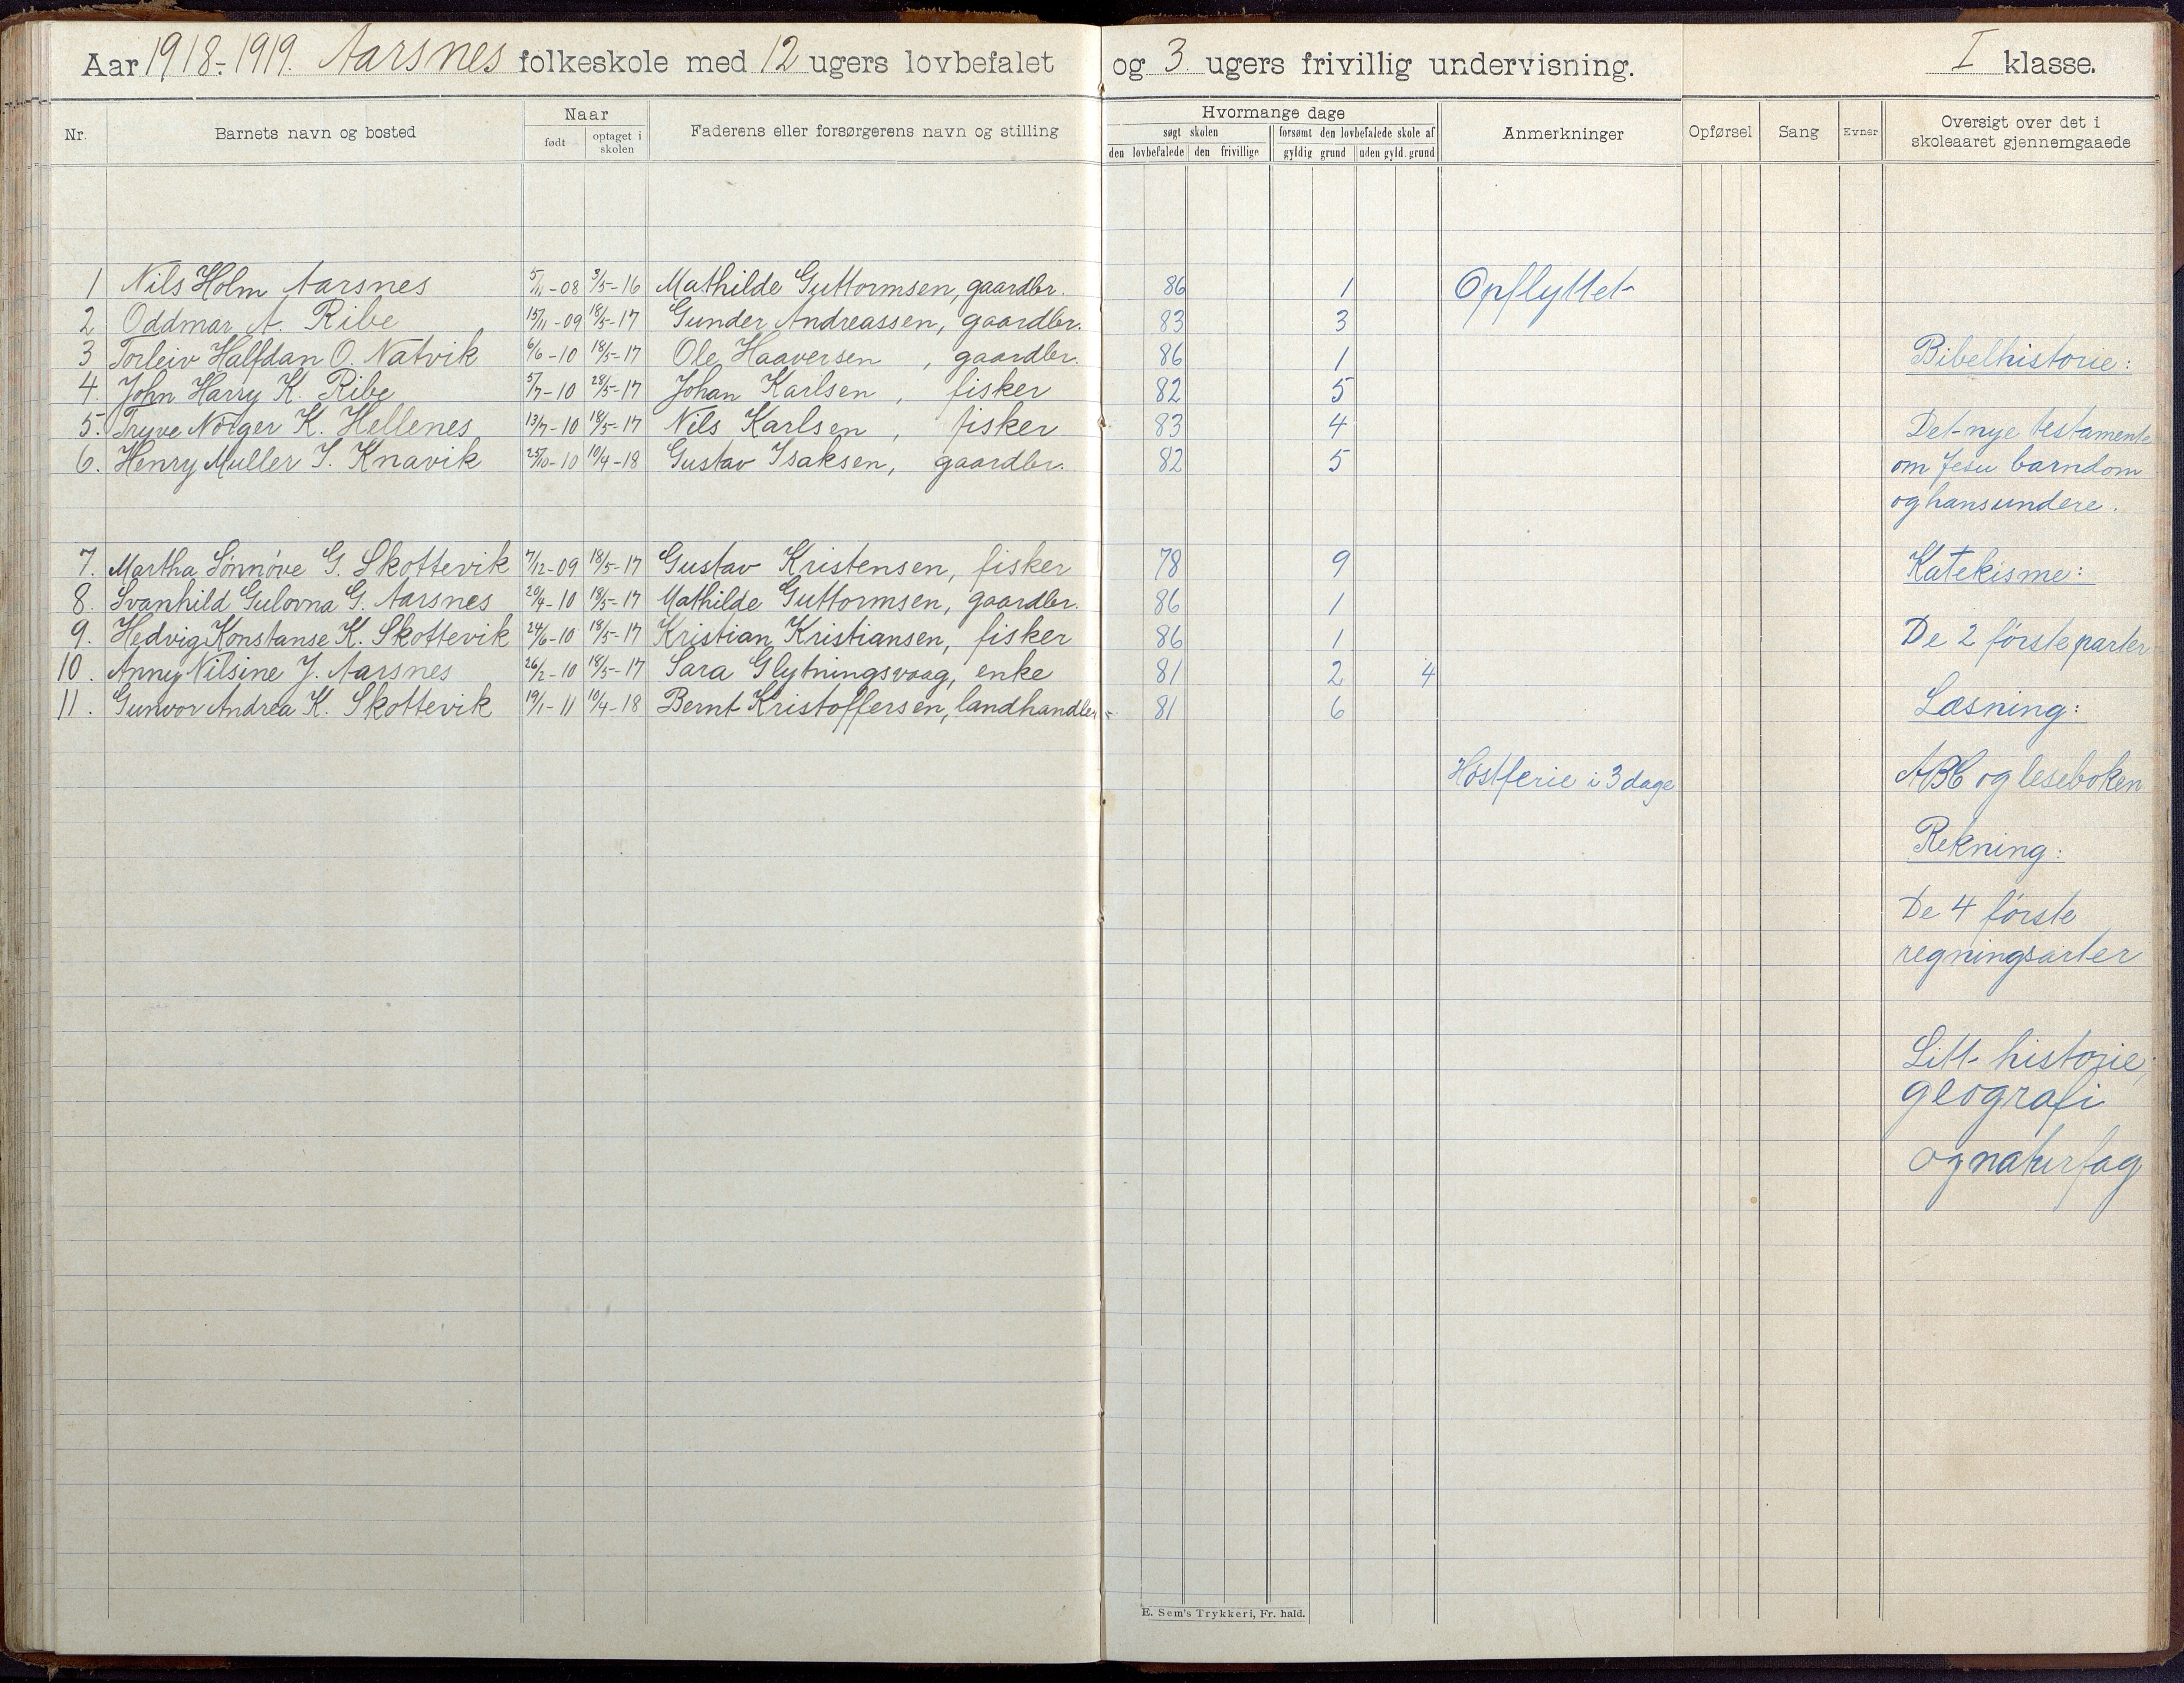 Aar 1918-1919. Aarsnes folkeskole med 12 ugers lovbefalet og 3 ugers frivillig undervisning. I klasse.
Nr. Barnets navn og bosted Naar født optaget i skolen Faderens eller forsørgerens navn og stilling Hvormange dage søgt skolen den lovbefalede den frivillige forsømt den lovbefalede skole af gyldig grund uden gyld. grund Anmerkninger Opførsel Sang Evner Oversigt over det i skoleaaret gjennemgaaede
1 Nils Holm Aarsnes 5/11-08 3/5-16 Mathilde Guttormsen, gaardbr. 86 1 Opflyttet
2 Oddmar A. Ribe 15/11-09 18/5-17 Gunder Andreassen, gaardbr. 83 3
3 Torleiv Halfdan O. Natvik 6/6-10 18/5-17 Ole Haaversen, gaardbr. 86 1
4. John Harry K. Ribe 5/7-10 28/5-17 Johan Karlsen, fisker 82 5
5. Tryve Nörger K. Hellenes 13/7-10 18/5-17 Nils Karlsen, fisker 83 4
6. Henry Muller I. Knavik 25/10-10 10/4-18 Gustav Isaksen, gaardbr. 82 5
7. Martha Sønnøve G. Skottevik 7/12-09 18/5-17 Gustav Kristensen, fisker 78 9
8. Svanhild Gulovna G. Aarsnes 20/4-10 18/5-17 Mathilde Guttormsen, gaardbr. 86 1
9. Hedvig Konstanse K. Skottevik 24/6-10 18/5-17 Kristian Kristiansen, fisker 86 1
10. Anny Nilsine J. Aarsnes 26/2-10 18/5-17 Sara Glytningsvaag, enke 81 2 4
11. Gunvor Andrea K. Skottevik 19/1-11 10/4-18 Bernt Kristoffersen, landhandler 81 6
Høstferie i 3 dage
Bibelhistorie:
Det nye testamente
om Jesu barndom
og hans undere.
Katekisme:
De 2 første parter
Læsning:
ABC og leseboken
Rekning:
De 4 første
regningsarter
Litt historie,
geografi
og naturfag
E. Sem's Trykkeri, Fr. hald.